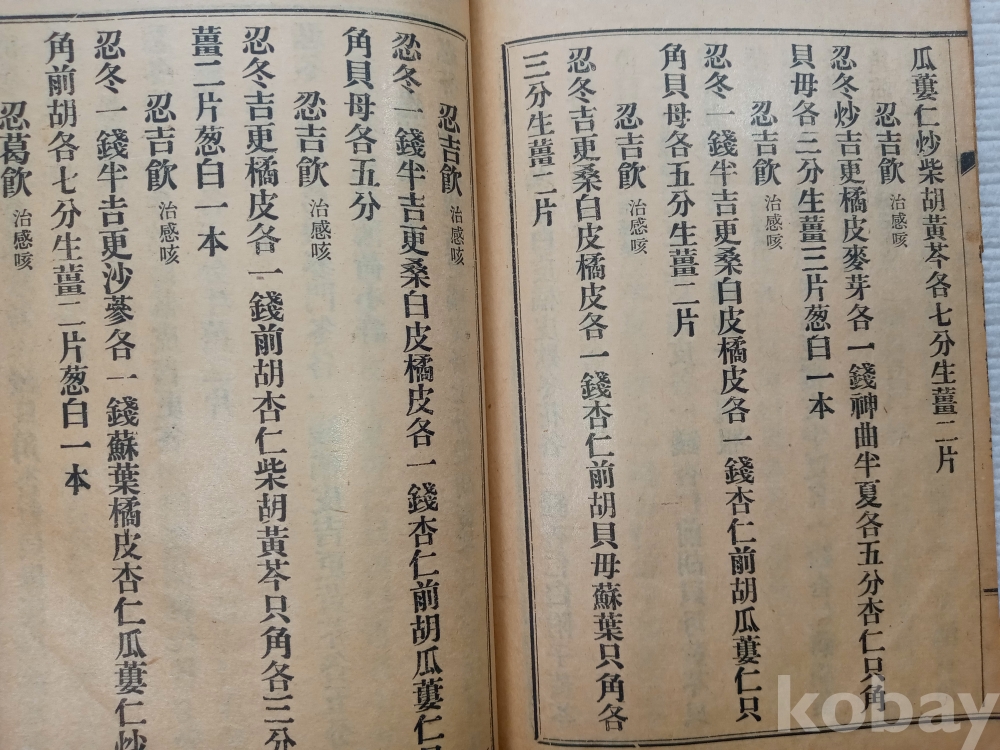 瓜蔞仁炒柴胡黃芩各七分生薑二片
忍吉飮 治感咳
忍冬炒吉更橘皮麥芽各一錢神曲半夏各五分杏仁只角
貝母各三分生薑三片葱白一本
忍吉飮 治感咳
忍冬一錢半吉更桑白皮橘皮各一錢杏仁前胡瓜蔞仁只
角貝母各五分生薑二片
忍吉飮 治感咳
忍冬吉更桑白皮橘皮各一錢杏仁前胡貝母蘇葉只角各
三分生薑二片
忍吉飮 治感咳
忍冬一錢半吉更桑白皮橘皮各一錢杏仁前胡瓜蔞仁
角貝母各五分
忍吉飮 治感咳
忍冬吉更橘皮各一錢前胡杏仁柴胡黃芩只角各三分
薑二片葱白一本
忍吉飮 治感咳
忍冬一錢半吉更沙蔘各一錢蘇葉橘皮杏仁瓜蔞仁炒
角前胡各七分生薑二片葱白一本
忍葛飮 治感咳
kobay